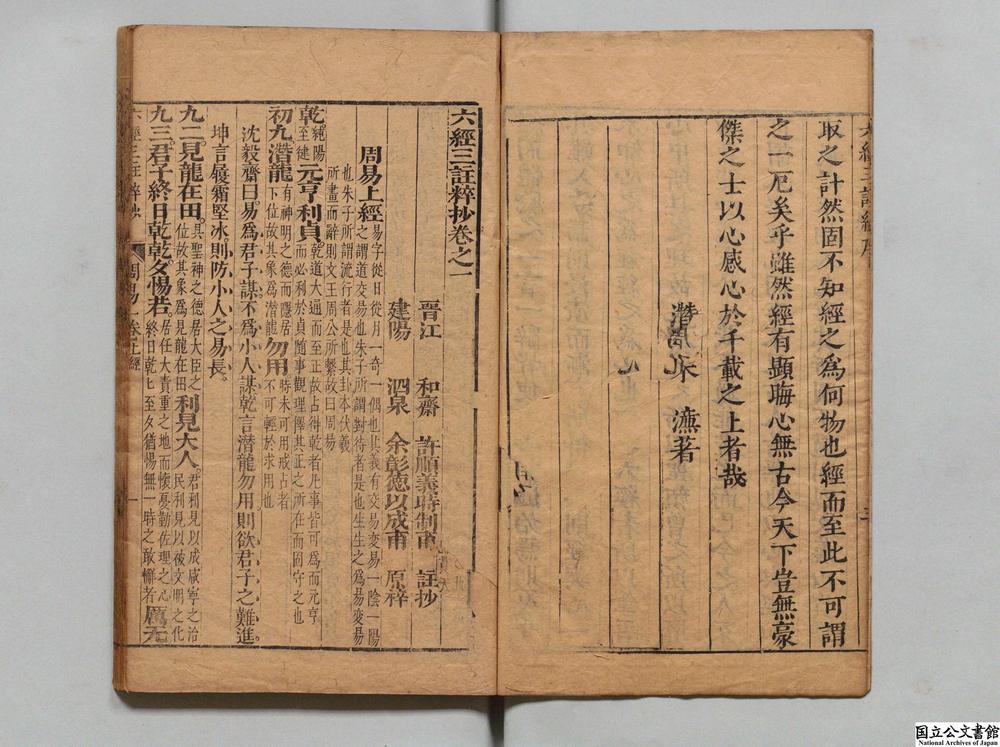 取之計然固不知經之爲何物也經而至此不可謂
之一厄矣乎雖然經有顯晦心無古今天下豈無豪
傑之士以心感心於千載之上者哉
著
六經三註粹抄卷之一
晉江 和齋 許順義時制甫 註抄
建陽 泗泉 余彰德以成甫 原梓
周易上經 易字從日從月一奇一偶也其義有交易變易一陰一陽
之謂道交易也朱子所謂對待者是也生生之爲易變易
也朱子所謂流行者是也其卦本伏羲
所畫而辭則文王周公所繫故曰周易
乾 純陽
至健
元亨利貞 乾道大通而至正故占得乾者凡事皆可爲而元亨
而必利於貞隨事觀理擇其正之所在而固守之也
初九潛龍 有神明之德而隱居
下位故其象爲潛龍
勿用 時未可用戒占者
不可輕於求用也
沈毅齋曰易爲君子謀不爲小人謀乾言潛龍勿用則欲君子之難進
坤言履霜堅冰則防小人之易長
九二見龍在田 具聖神之德居大臣之
位故其象爲見龍在田
利見大人 君利見以成咸寧之治
民利見以被文明之化
九三君子終日乾乾夕惕若 居任大責重之地而懷憂勤佐理之心
終日乾乾至夕猶惕無一時之敢懈者
厲无
国立公文書館
National Archives of Japan